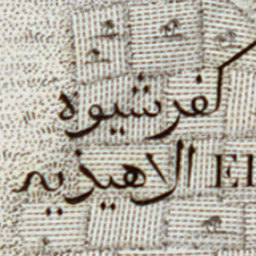 كفرشيوه
الاهيذيه El